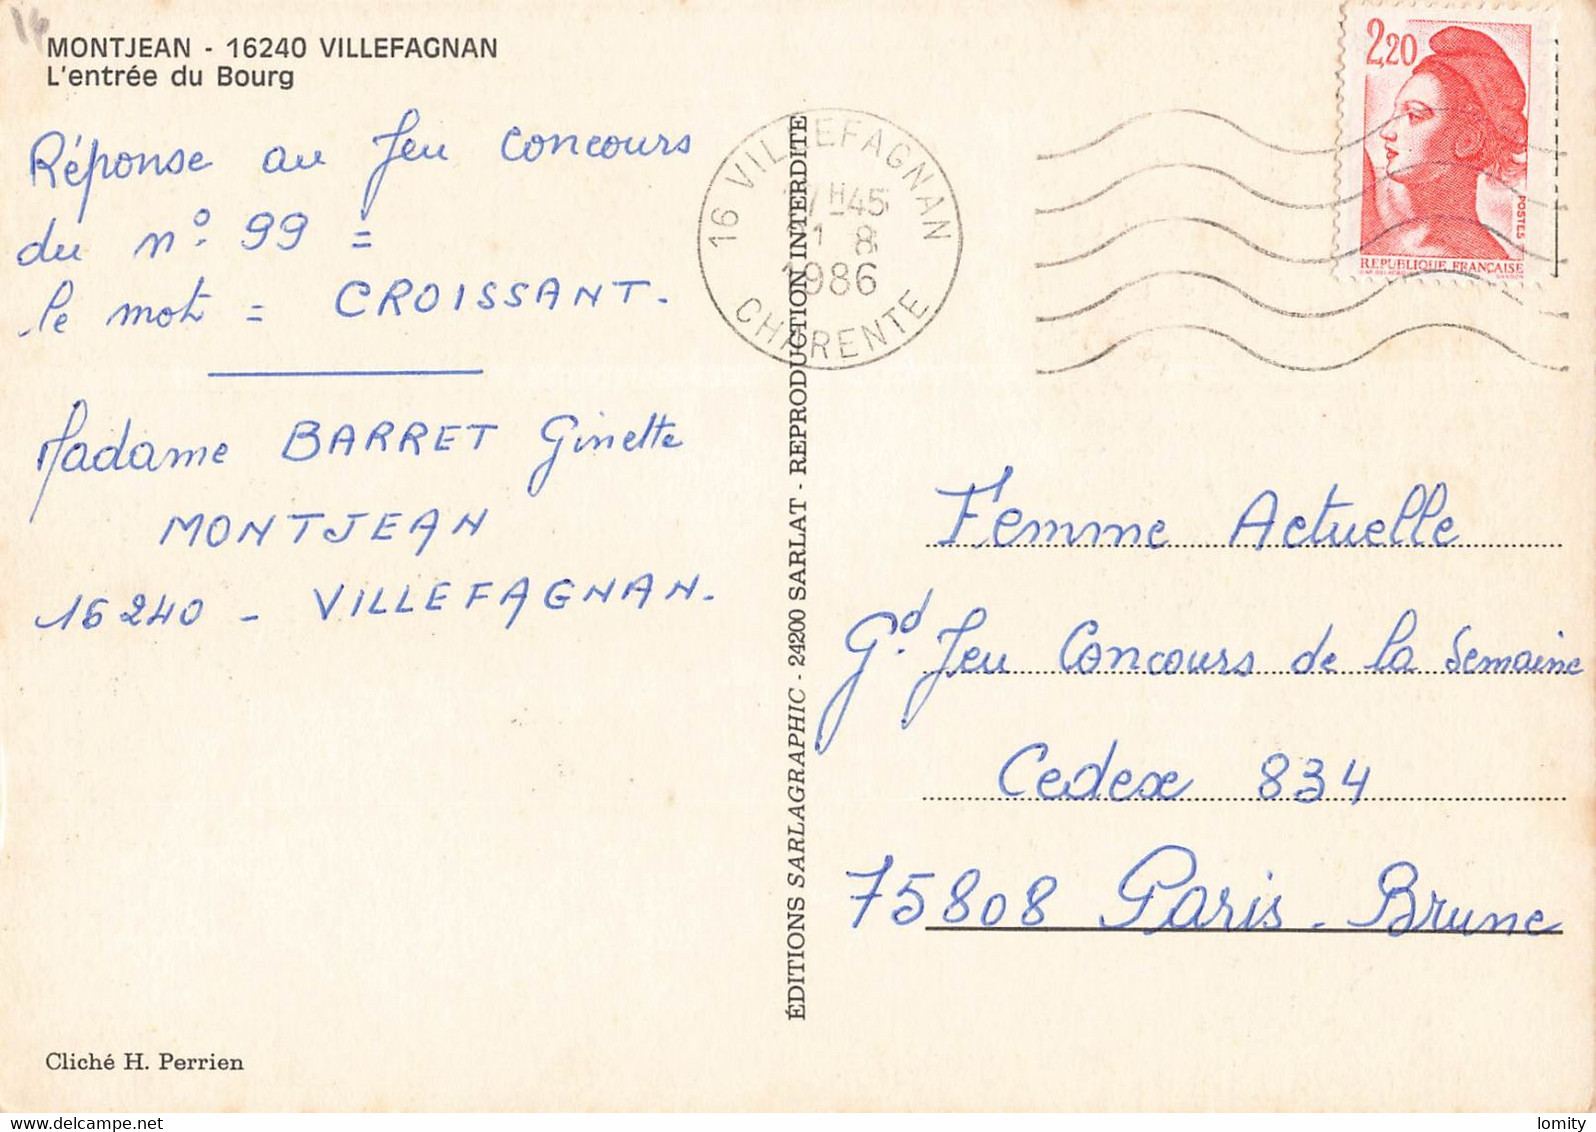 16
MONTJEAN - 16240 VILLEFAGNAN
L'entrée du Bourg
Réponse au Jeu Concours
du n° 99 =
le mot = CROISSANT.
Madame BARRET Ginette
MONTJEAN
16240 - VILLEFAGNAN.
Cliché H. Perrien
ÉDITIONS SARLAGRAPHIC - 24200 SARLAT - REPRODUCTION INTERDITE
16 VILLEFAGNAN
H 45
1 8
1986
CHARENTE
2,20
POSTES
REPUBLIQUE FRANÇAISE
Femme Actuelle
Gd. Jeu Concours de la Semaine
Cedex 834
75808 Paris - Brune
www.delcampe.net
lomity